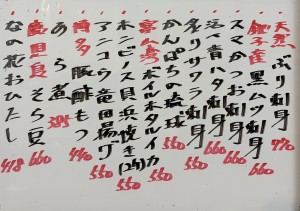 天然 ぶり刺身 770
銚子産 黒ムツ刺身 660
スマかつお刺身 660
青ハタ刺身 660
炙りサワラ刺身
かんぱちの琉球 550
富山湾 ボイルホタルイカ 550
ホンビノス貝浜焼き(2ケ) 550
アンコウ竜田揚げ 550
博多 豚酢もつ 440
あら煮 385
そら豆 660
なの花おひたし 418